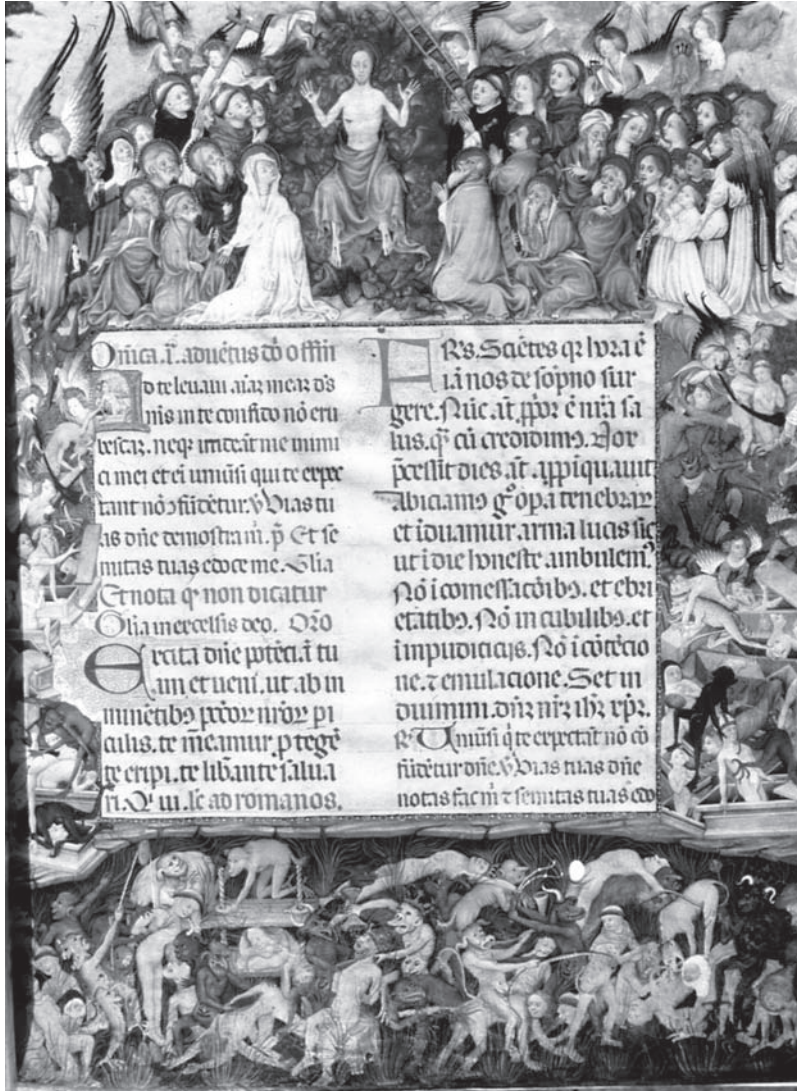 Omica. i. advētus dō offm
Ad te levavi aīaz meaz ds
mis in te confido nō eru
bescaz. neqz irride at me inimi
ci mei et ei umūsi qui te expec
tant nō ɔfūdētur. ℣ Vias tu
as dñe demostra m. p Et se
mitas tuas edoce me. Glia
Et nota qz non dicatur
Glia in excelsis deo. Oro
Excita dñe potēciā tu
am et veni. ut ab in
minētibꝫ pccoꝝ nroꝝ pi
culis. te meamur. ptegē
te eripi. te libante salva
ri. ad romanos.
FRs. Sciētes qz hora ē
iā nos de sōpno sur
gere. Nūc at ppoꝛ ē nrā sa
lus. qz cū credidimꝰ. Nox
pcessit dies at appiquavit
Abiciamꝰ gᵒ opa tenebraꝝ
et iduamur arma lucis sic
ut i die honeste ambulemꝰ
Nō i comessacōibꝫ. et ebri
etatibꝫ. Nō in cubilibꝫ. et
impudiciis. Nō i cōtēcio
ne. ⁊ emulacione. Set in
duimini. dnz nrz ihz xpz.
℟ Umūsi q te expectāt nō cō
fūdētur dñe. ℣ Vias tuas dñe
notas fac m ⁊ semitas tuas edo